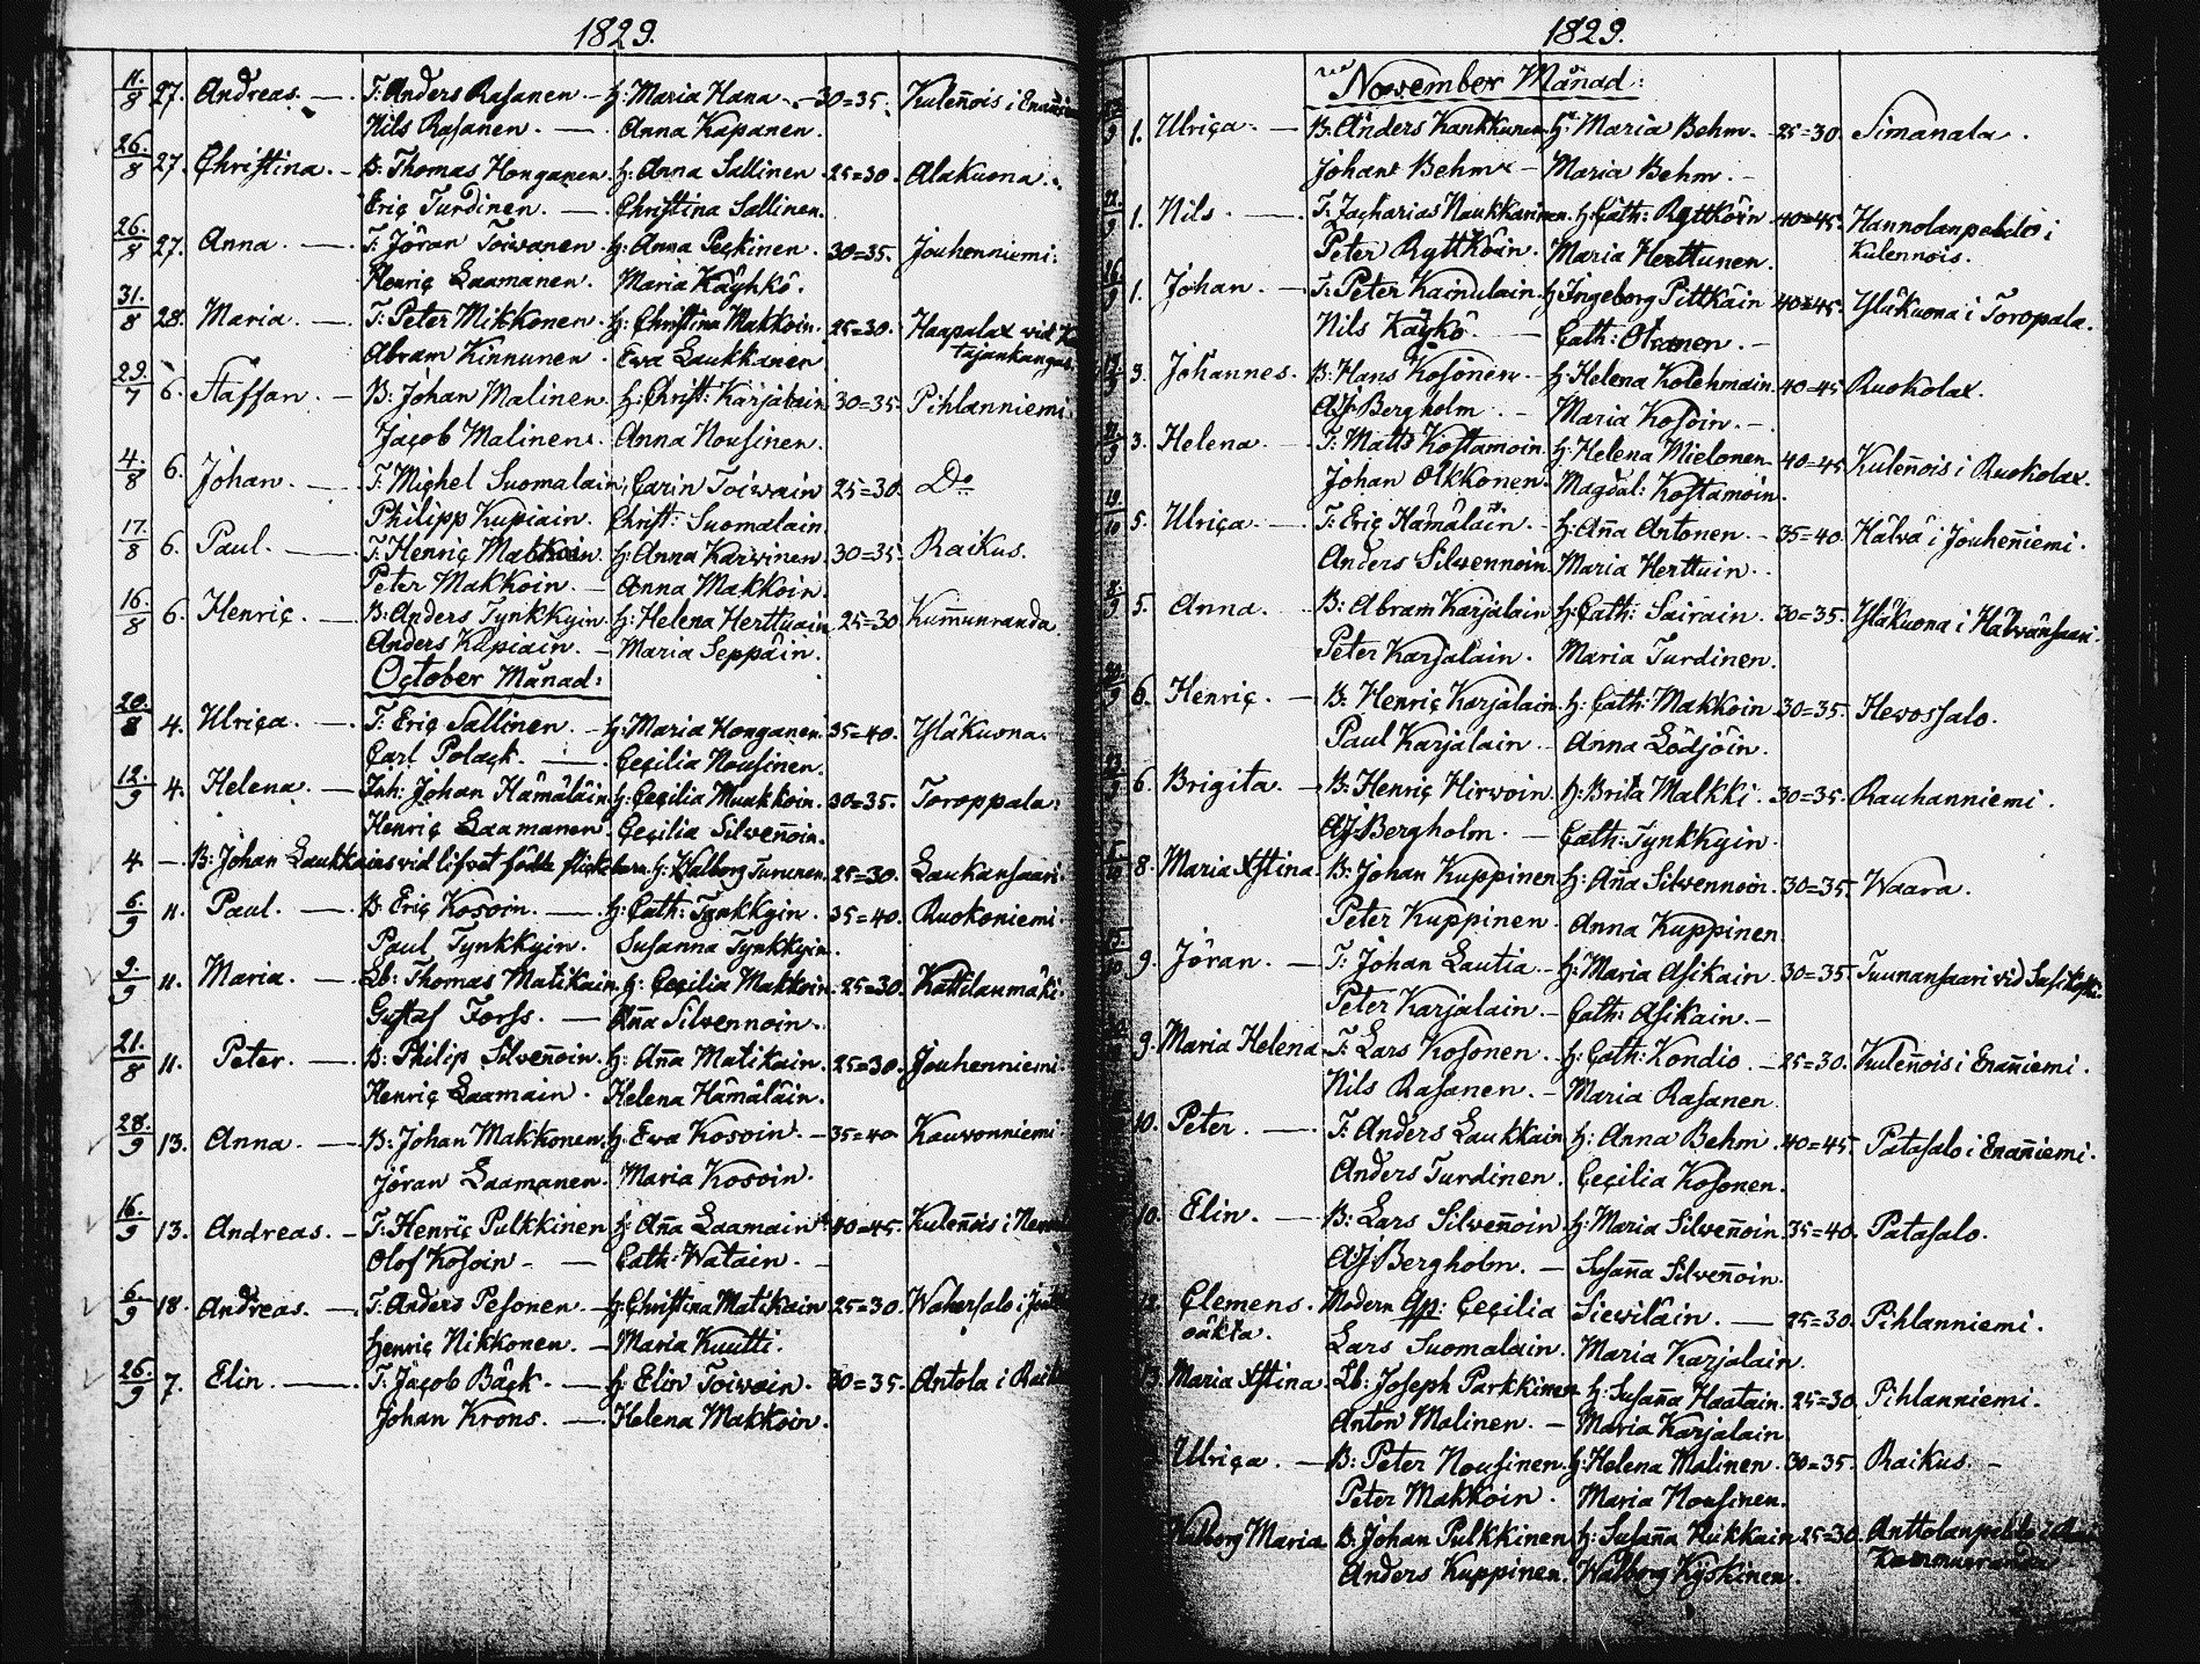 1829.
11./8 27. Andreas. — T: Anders Rasanen. — h: Maria Hana. — 30=35. Kulen̄ois i
Nils Rasanen. — Anna Kapanen.
26./8 27. Christina. — B: Thomas Honganen. h: Anna Sallinen. 25=30. Alakuona.
Eric Turdinen. — Christina Sallinen.
26./8 27. Anna. — T: Jöran Toiwanen. h: Anna Peckinen. 30=35. Jouhenniemi.
Henric Laamanen. Maria Käyhkö.
31./8 28. Maria. — T: Peter Mikkonen. h: Christina Makkoin. 25=30. Haapalax vid
Abram Kinnunen. Ewa Laukkanen tajankangas
29./7 6. Staffan. — B: Johan Malinen. h: Christ: Karjalain 30=35. Pihlanniemi.
Jacob Malinen. Anna Nousinen.
4./8 6. Johan. — T: Michel Suomalain, Carin Toiwain 25=30. Do
Philipp Kupiain. Christ: Suomalain.
17./8 6. Paul. — T: Henric Makkoin. h: Anna Karwinen 30=35. Raikus.
Peter Makkoin. — Anna Makkoin.
16./8 6. Henric. — B: Anders Tynkkyin. h: Helena Herttuain. 25=30. Kum̄unranda
Anders Kupiain. — Maria Seppäin.
October Månad:
20./8 4. Ulrica. — T: Eric Sallinen. — h: Maria Honganen. 35=40. Yläkuona.
Carl Polack. — Cecilia Nousinen.
12./9 4. Helena. — Inh: Johan Hämäläin. h: Cecilia Muukkoin. 30=35. Toroppala.
Henric Laamanen. Cecilia Silwen̄oin.
4 — B: Johan Laukkains vid lifvet födde flickebarn. h: Walborg Turunen. 25=30. Laukansaari.
6./9 11. Paul. — B: Eric Kosoin. — h: Cath: Tynkkyin. 35=40. Ruokoniemi.
Paul Tynkkyin. Susanna Tynkkyin.
9./9 11. Maria. — Lb: Thomas Matikain. h: Cecilia Makkoin. 25=30. Kattilanmäki.
Gustaf Forss. — An̄a Silvennoin.
21./8 11. Peter. — B: Philip Silven̄oin. h: An̄a Matikain. 25=30. Jouhenniemi.
Henric Laamain. Helena Hämäläin.
28./9 13. Anna. — B: Johan Makkonen. h: Ewa Kosoin. — 35=40 Kauvonniemi
Jöran Laamanen. Maria Kosoin.
16./9 13. Andreas. — T: Henric Pulkkinen h: An̄a Laamain 40=45. Kulen̄ois i
Olof Kosoin — Cath: Watain. —
6./9 18. Andreas. — T: Anders Pesonen. — h: Christina Matikain 25=30. Wahersalo i
Henric Nikkonen. — Maria Kuutti.
26./9 7. Elin. — T: Jacob Bäck. — h: Elin Toiwain. 30=35. Antola i
Johan Krons. — Helena Makkoin.
1829.
November Månad:
/9 1. Ulrica. — B: Anders Kankkunen. h: Maria Behm. 25=30. Simanala.
Johan Behm — Maria Behm. —
22./9 1. Nils. — T: Zacharias Naukkarinen. h: Cath: Ryttköin 40=45. Hannolanpeldo i
Peter Ryttköin. Maria Herttunen. Kulennois.
26./9 1. Johan. — T: Peter Kainulain. h: Ingeborg Pittkäin 40=45. Yläkuona i Toropala.
Nils Käykö — Cath: —
/9 3. Johannes. B: Hans Kosonen. — h: Helena Kolehmain. 40=45 Ruokolax.
A:J: Bergholm. — Maria Kosoin. —
/9 3. Helena. — T: Matts Kostamoin. h: Helena Mielonen. 40=45 Kulen̄ois i Ruokolax.
Johan Olkkonen. Magdal: Kostamoin.
/10 5. Ulrica. — T: Eric Hämäläin. — h: An̄a Antonen. — 35=40. Hälvä i Jouhen̄iemi.
Anders Silwennoin. Maria Herttuin.
8./9 5. Anna. — B: Abram Karjalain h: Cath: Sairain. 30=35. Yläkuona i Hälwänsaari.
Peter Karjalain. Maria Turdinen.
/9 6. Henric. — B: Henric Karjalain. h: Cath: Makkoin 30=35. Hevossalo.
Paul Karjalain. — Anna Lödjöin.
/9 6. Brigita. — B: Henric Hirwoin. h: Brita Malkki. 30=35. Rauhanniemi.
A:J: Bergholm. — Cath: Tynkkyin.
/10 8. Maria Xstina. B: Johan Kuppinen. h: An̄a Silvennoin. 30=35. Waara.
Peter Kuppinen. Anna Kuppinen.
/10 9. Jöran. — T: Johan Lautia. — h: Maria Asikain. 30=35. Tuunansaari vid
Peter Karjalain. — Cath: Asikain. —
9. Maria Helena T: Lars Kosonen. — h: Cath: Kondio. — 25=30. Kulen̄ois i Enan̄iemi.
Nils Rasanen. — Maria Rasanen.
10. Peter. — T: Anders Laukkain h: Anna Behm. 40=45. Patasalo i Enan̄iemi.
Anders Turdinen. Cecilia Kosonen.
10. Elin. — B: Lars Silven̄oin h: Maria Silven̄oin. 35=40. Patasalo.
A:J: Bergholm. — Susan̄a Silven̄oin.
12. Clemens. Modern Gp: Cecilia Siewiläin. — 25=30. Pihlanniemi.
oäkta. Lars Suomalain. Maria Karjalain.
13. Maria Xstina. Lb: Joseph Parkkinen h: Susan̄a Haatain. 25=30. Pihlanniemi.
Anton Malinen. — Maria Karjalain.
Ulrica. — B: Peter Nousinen. h: Helena Malinen. 30=35. Raikus. —
Peter Makkoin. Maria Nousinen.
Walborg Maria B: Johan Pulkkinen h: Susan̄a Hukkain 25=30. Anttolanpeldo
Anders Kuppinen. Walborg Kyskinen.